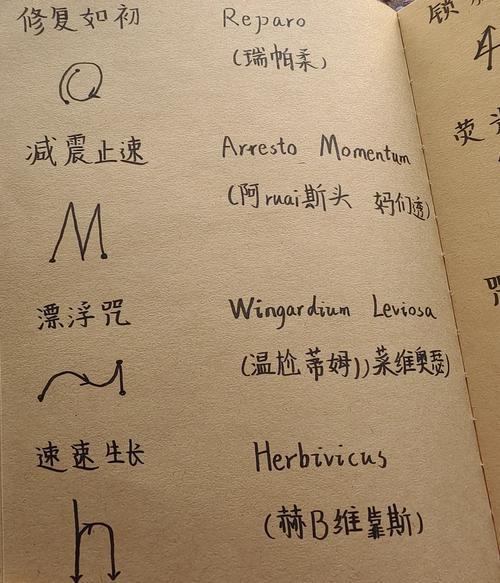 修复如初 Reparo
(瑞帕柔)
减震止速 Arresto Momentum
(阿ruai斯头 妈们透)
漂浮咒 Wingardium Leviosa
(温尬蒂姆))菜维奥瑟)
速速生长 Herbivicus
(赫B维靠斯)
锁
荧